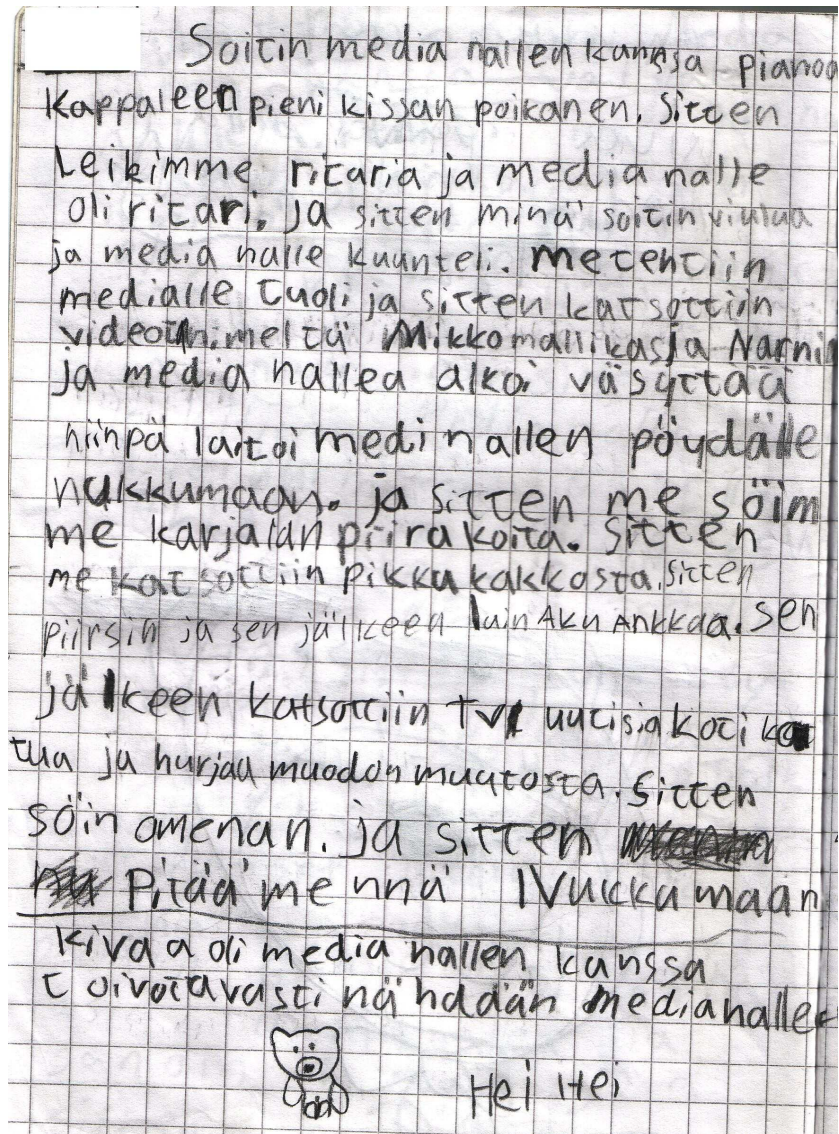 Soitin media nallen kanssa pianoa
Kappaleen pieni kissan poikanen. Sitten
Leikimme ritaria ja media nalle
oli ritari. ja sitten minä soitin viulua
ja media nalle kuunteli. me tehtiin
medialle tuoli ja sitten katsottiin
videoin nimeltä Mikko mallikas ja Narnia
ja media nallea alkoi väsyttää
niinpä laitoi medi nallen pöydälle
nukkumaan. ja sitten me söim
me karjalan piirakoita. Sitten
me katsottiin pikku kakkosta. sitten
piirsin ja sen jälkeen luin AKU ANKKaa. sen
jälkeen katsottiin Tv uutisia koti ka
tua ja hurjaa muodon muutosta. sitten
söin omenan. ja sitten
Pitää mennä Nukkumaan
kivaa oli media nallen kanssa
toivottavasti nähdään media nalle
Hei Hei